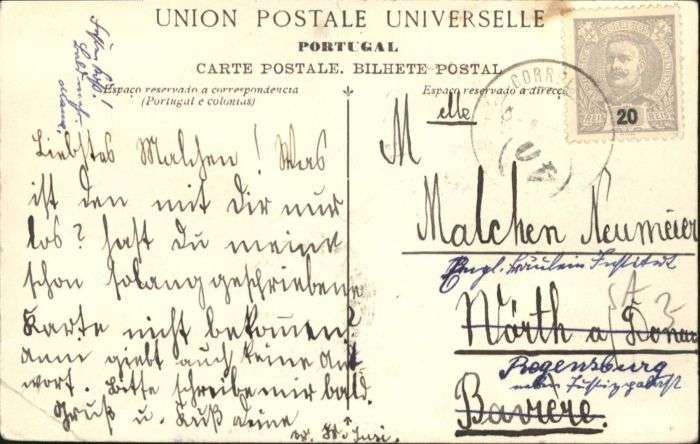 UNION POSTALE UNIVERSELLE
PORTUGAL
CARTE POSTALE. BILHETE POSTAL
Espaço reservado a correspondencia
(Portugal e colonias)
Espaço reservado a direcç
CORREIOS
20
CORRE
Liebstes Malchen! Was
ist den mit Dir nur
los? hast Du meine
schon solang geschriebene
Karte nicht bekommen?
ann giebt auch keine Ant
wort. Bitte schreibe mir bald.
Gruß u. Kuß Deine
Melle
Malchen Neumeier
Engl. Fräulein Institut
Wörth a Donau
Regensburg
neben Justizpalast
Baviere.